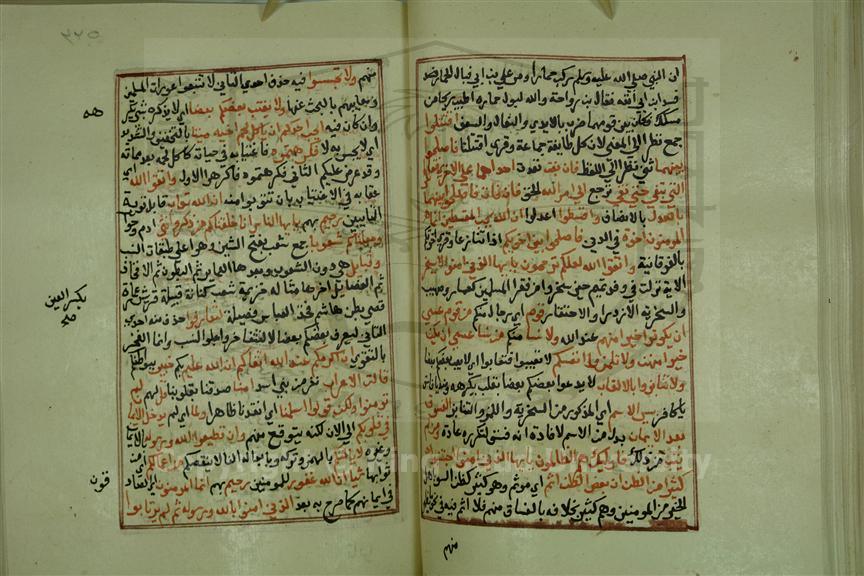 ان النبي صلى الله عليه وسلم ركب حمارا ومر على ابن ابي فبال الحمار فسد
فسد ابن ابي انفه فقال بن رواحة والله لبول حماره اطيب ريحا من
مسكك فكان بين قوميهما ضرب بالايدي والنعال والسعف اقتتلوا
جمع نظر الى المعنى لان كل طايفة جماعة وقرئ اقتتلتا فاصلحوا
بينهما ثنى نظر الى اللفظ فان بغت تعدت احداهما على الاخرى فقاتلوا
التي تبغي حتى تفئ ترجع الى امر الله الحق فان فاءت فاصلحوا بينهما
بالعدل بالانصاف واقسطوا اعدلوا ان الله يحب المقسطين انما
المومنون اخوة في الدين فاصلحوا بين اخويكم اذا تنازعا وقرئ اخوتكم
بالفوقانية واتقوا الله لعلكم ترحمون يايها الذين امنوا لا يسخر
الاية نزلت في وفد تميم حين سخروا من فقرا المسلمين كعمار وصهيب
والسخرية الازدرا والاحتقار قوم اي رجال منكم من قوم عسى
ان يكونوا خيرا منهم عند الله ولا نسا منكم من نسا عسى ان يكن
خيرا منهن ولا تلمزوا انفسكم لا تعيبوا فتعابوا اي لا يعب بعضكم بعضا
ولا تنابزوا بالالقاب لا يدعوا بعضكم بعضا بلقب يكرهه ومنه يا فاسق
يا كافر بيس الاسم اي المذكور من السخرية واللمز والتنابز الفسوق
بعد الايمان بدل من الاسم لافادة انه فسق لتكرره عادة ومن لم
يتب من ذلك فاوليك هم الظالمون يايها الذين امنوا اجتنبوا
كثيرا من الظن ان بعض الظن اثم اي موثم وهو كثير كظن السوء باهل
الخير من المومنين وهم كثير بخلافه بالفساق منهم فلا اثم فيه في نحو ما يظهر
منهم
٢٢٥
منهم ولا تجسسوا فيه حذف احدى التاين لا تتبعوا عورات المسلمين
ومعايبهم بالبحث عنها ولا يغتب بعضكم بعضا اي لا يذكره بشئ يكرهه
وان كان فيه ايحب احدكم ان ياكل لحم اخيه ميتا بالتخفيف والتشديد
اي لا يحس به لا فكرهتموه فاغتيابه في حياته كاكل لحمه بعد مماته
وقد عرض عليكم الثاني فكرهتموه فاكرهوا الاول واتقوا الله اي
عقابه في الاغتياب بان تتوبوا منه ان الله تواب قابل توبة
التايبين رحيم بهم يايها الناس انا خلقناكم من ذكر وانثى ادم وحوا
وجعلناكم شعوبا جمع شعب بفتح الشين وهو اعلى طبقات النسب
وقبايل هي دون الشعوب وبعدها العماير ثم البطون ثم الافخاذ
ثم الفصايل اخرها مثاله خزيمة شعب كنانة قبيلة قريش عمارة
قصي بطن هاشم فخذ العباس فصيلة لتعارفوا حذف منه احدى
التاين ليعرف بعضكم بعضا لا لتفاخروا بعلو النسب وانما الفخر
بالتقوى ان اكرمكم عند الله اتقاكم ان الله عليم بكم خبير ببواطنكم
قالت الاعراب نفر من بني اسد امنا صدقنا بقلوبنا قل لهم لم
تومنوا ولكن قولوا اسلمنا اي انقدنا ظاهرا ولما اي لم يدخل الايمان
في قلوبكم الى الان لكنه يتوقع منهم وان تطيعوا الله ورسوله بالايمان
وغيره لا يالتكم بالهمز وتركه وبابداله الفا لا ينقصكم من اعمالكم اي من
ثوابها شيا ان الله غفور للمومنين رحيم بهم انما المومنون اي الصادقون
في ايمانهم كما صرح به بعد الذين امنوا بالله ورسوله ثم لم يرتابوا
هه
بكسر العين
صح
قون